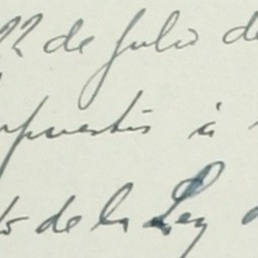 22 de Julio de
mpuestos á
to de la Ley d